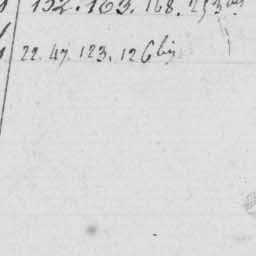 152. 163. 168. 253 bis
22. 47. 123. 126 bis